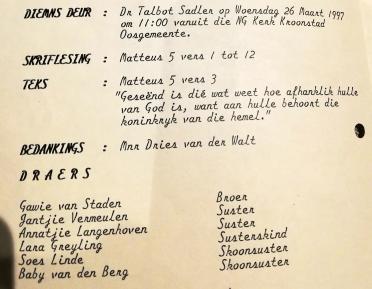 DIENS DEUR : Dr Talbot Sadler op Woensdag 26 Maart 1997
om 11:00 vanuit die NG Kerk Kroonstad
Oosgemeente.
SKRIFLESING : Matteus 5 vers 1 tot 12
TEKS : Matteus 5 vers 3
"Geseënd is dié wat weet hoe afhanklik hulle
van God is, want aan hulle behoort die
koninkryk van die hemel."
BEDANKINGS : Mnr Dries van der Walt
DRAERS
Gawie van Staden Broer
Jantjie Vermeulen Suster
Annatjie Langenhoven Suster
Lara Greyling Susterskind
Soes Linde Skoonsuster
Baby van den Berg Skoonsuster